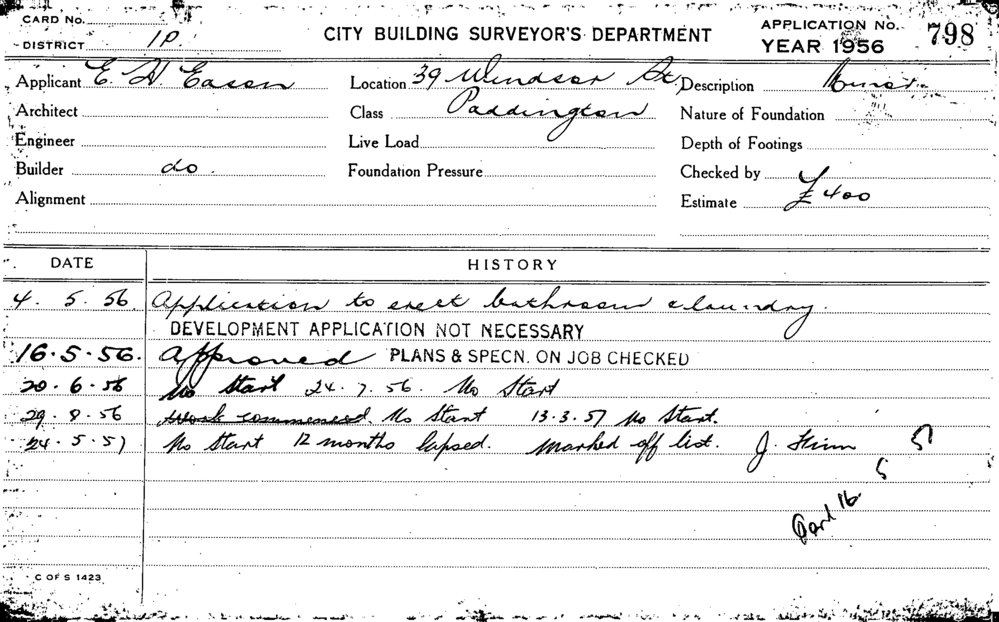 CARD No.
DISTRICT 1P.
CITY BUILDING SURVEYOR'S DEPARTMENT
APPLICATION No. 798
YEAR 1956
Applicant E. H. Eason
Location 39 Windsor St,
Description
Architect
Class Paddington
Nature of Foundation
Engineer
Live Load
Depth of Footings
Builder do.
Foundation Pressure
Checked by
Alignment
Estimate £400
DATE HISTORY
4. 5. 56 Application to erect bathroom & laundry.
DEVELOPMENT APPLICATION NOT NECESSARY
16.5.56. Approved PLANS & SPECN. ON JOB CHECKED
20.6.56 No Start 24.7.56. No Start
29.8.56 Work commenced. No Start 13.3.57 No Start.
24.5.57 No Start 12 months lapsed. Marked off list. J.
16. 5 57
C OF S 1423